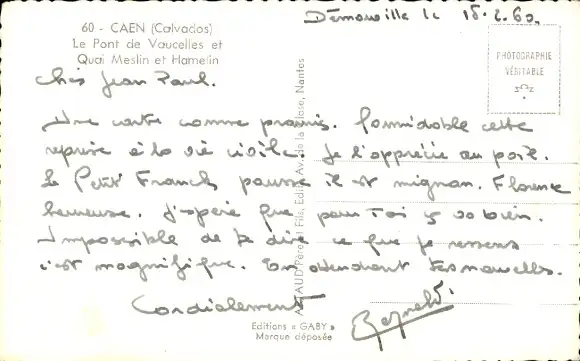 60 - CAEN (Calvados)
Le Pont de Vaucelles et
Quai Meslin et Hamelin
Démouville le 18.2.60.
PHOTOGRAPHIE
VÉRITABLE
Cher Jean Paul.
Une carte comme promis. Formidable cette
reprise à la vie civile. Je l'apprécie au poil.
Le Petit Franck pousse il est mignan. Florence
heureuse. J'espère que pour Toi ça va bien.
Impossible de te dire ce que je ressens
c'est magnifique. En attendant Tes nouvelles.
Cordialement
Père et Fils, Edit., Av. de la Close, Nantes
Editions « GABY »
Marque déposée